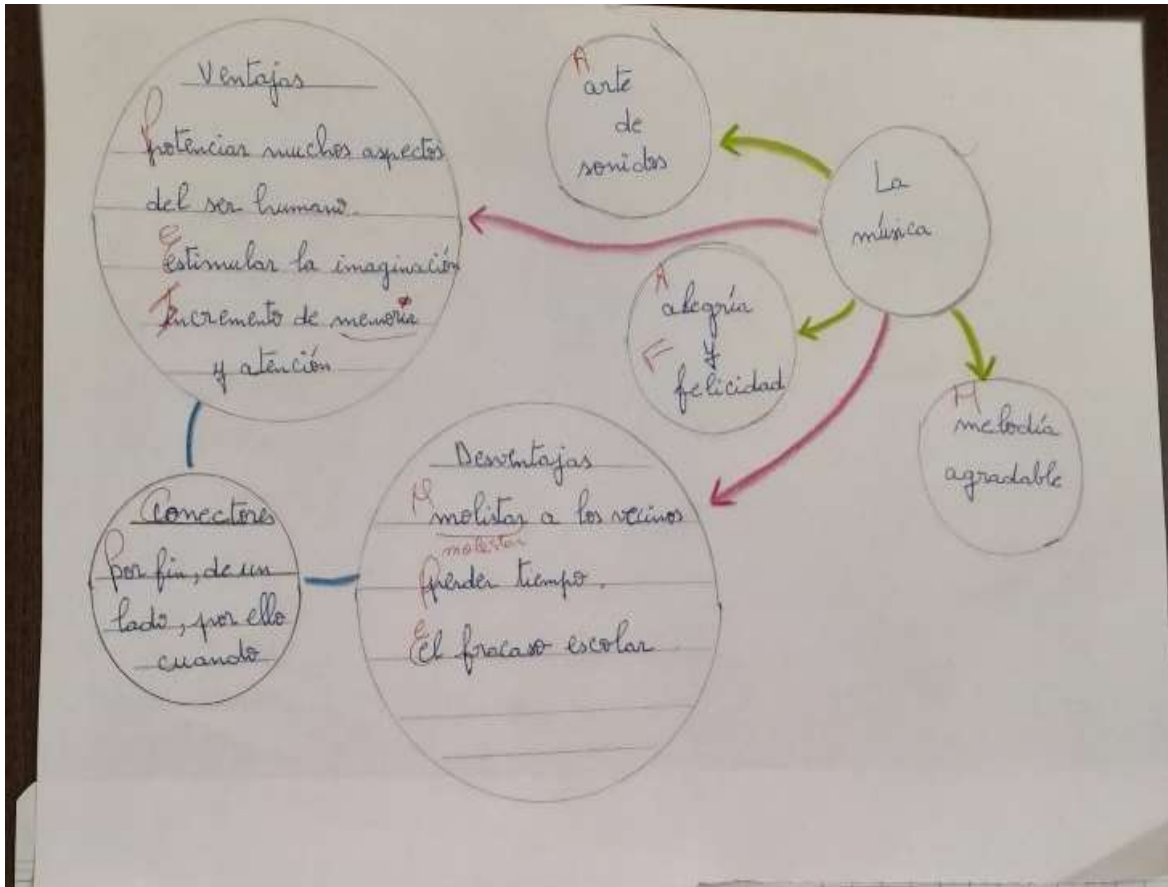 Ventajas
Potenciar muchos aspectos
del ser humano.
Estimular la imaginación
Incremento de memoria
y atención
A
arte
de
sonidos
La
música
A
alegría
F y
felicidad
M
melodía
agradable
Desventajas
M molistar a los vecinos
molestar
Perder tiempo.
El fracaso escolar.
Conectores
Por fin, de un
lado, por ello
cuando